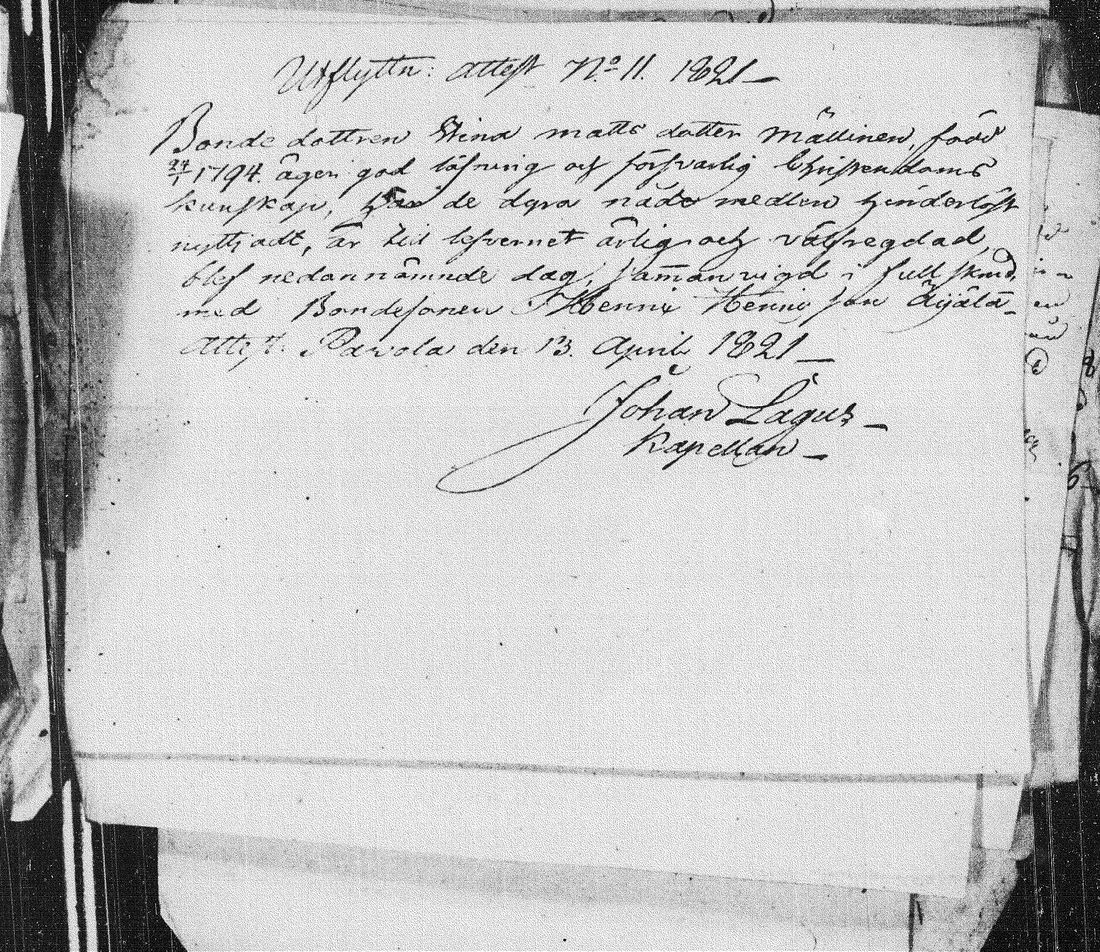 Utflyttn: Attest No 11. 1821
Bonde dottren Stina Matts dotter Mällinen, född
24/1 1794. äger god läsning och försvarlig Christendoms
kunskap, har de dyra nåde medlen hinderlöst
nyttjadt, är til lefvernet ärlig och välfregdad,
blef nedannämnde dag, samman vigd i full skrud
med Bondesonen Henric Henric son Äijälä
Attest. Pavola den 13. April 1821
Johan Lagus
Kapellan